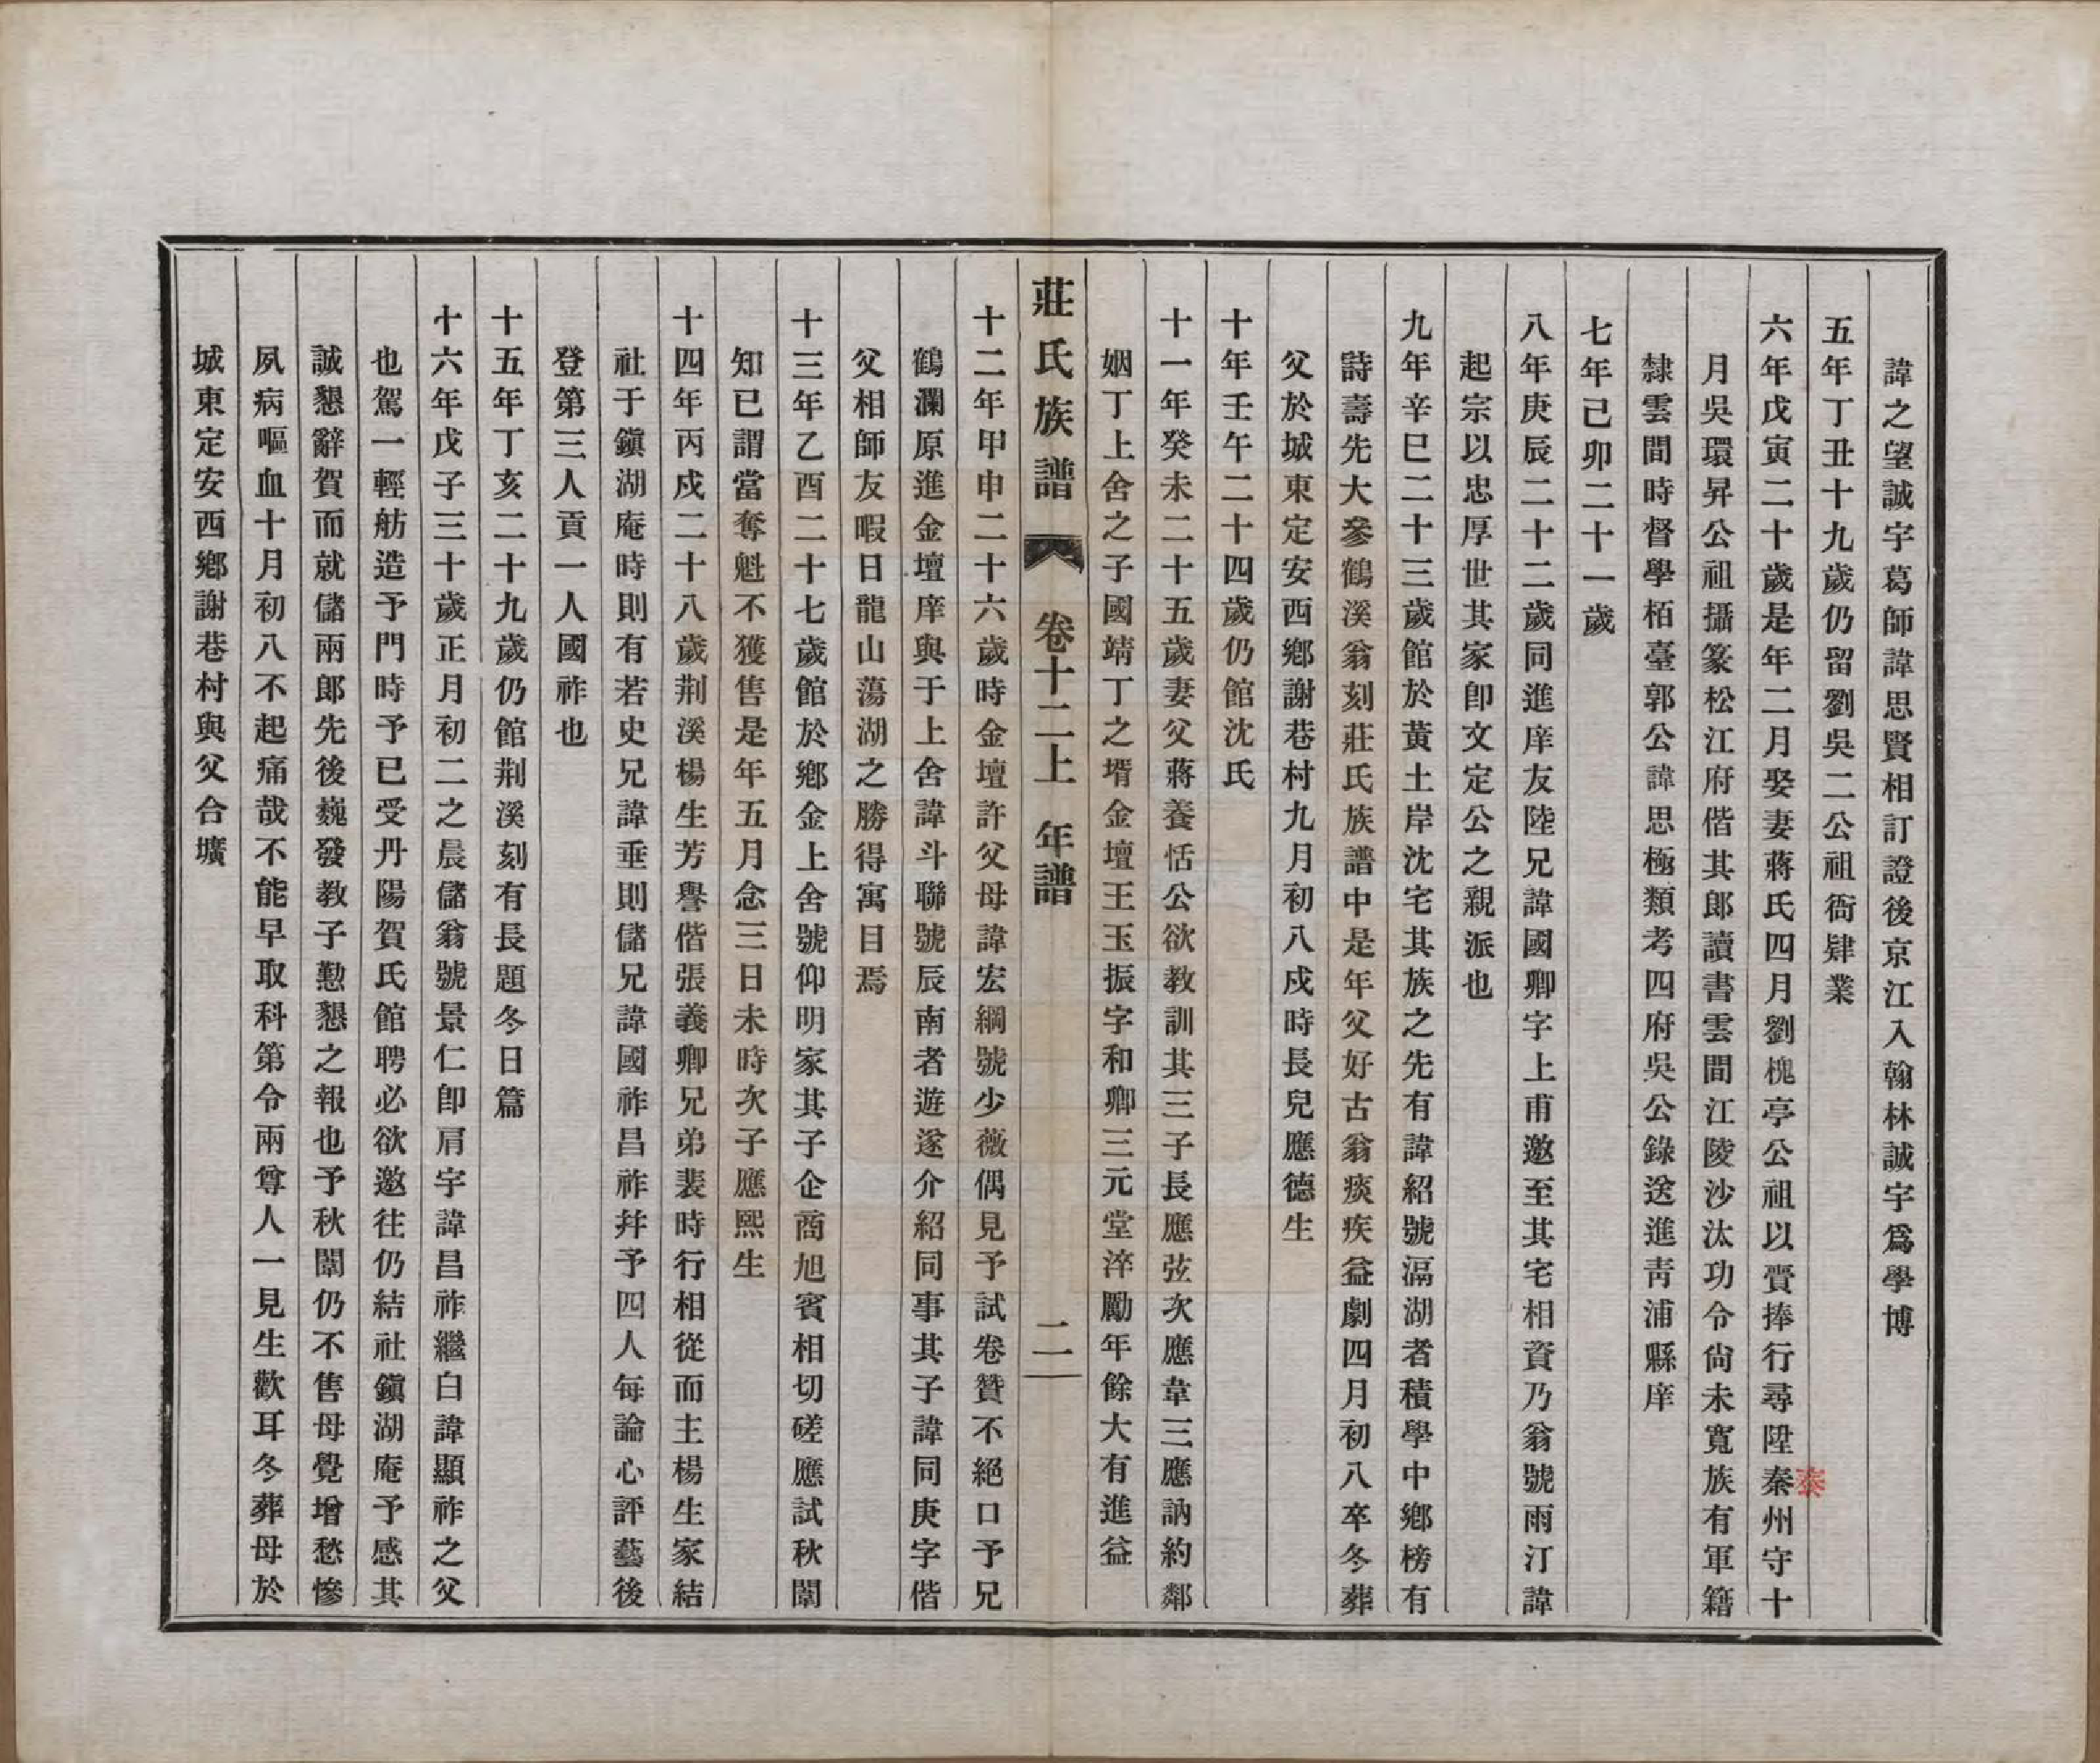 諱之望誠宇葛師諱思賢相訂證後京江入翰林誠宇爲學博
五年丁丑十九歲仍留劉吳二公祖衙肄業
六年戊寅二十歲是年二月娶妻蔣氏四月劉槐亭公祖以賫捧行尋陞秦州守十
泰
月吳環昇公祖攝篆松江府偕其郎讀書雲間江陵沙汰功令尙未寬族有軍籍
隸雲間時督學栢臺郭公諱思極類考四府吳公錄送進靑浦縣庠
七年己卯二十一歲
八年庚辰二十二歲同進庠友陸兄諱國卿字上甫邀至其宅相資乃翁號雨汀諱
起宗以忠厚世其家卽文定公之親派也
九年辛巳二十三歲館於黃土岸沈宅其族之先有諱紹號滆湖者積學中鄉榜有
詩壽先大參鶴溪翁刻莊氏族譜中是年父好古翁痰疾益劇四月初八卒冬葬
父於城東定安西鄉謝巷村九月初八戍時長兒應德生
十年壬午二十四歲仍館沈氏
十一年癸未二十五歲妻父蔣養恬公欲教訓其三子長應弦次應韋三應訥約鄰
姻丁上舍之子國靖丁之壻金壇王玉振字和卿三元堂淬勵年餘大有進益
莊氏族譜 卷十二上 年譜 二
十二年甲申二十六歲時金壇許父母諱宏綱號少薇偶見予試卷贊不絕口予兄
鶴瀾原進金壇庠與于上舍諱斗聯號辰南者遊遂介紹同事其子諱同庚字偕
父相師友暇日龍山蕩湖之勝得寓目焉
十三年乙酉二十七歲館於鄉金上舍號仰明家其子企商旭賓相切磋應試秋闈
知已謂當奪魁不獲售是年五月念三日未時次子應熙生
十四年丙戍二十八歲荆溪楊生芳譽偕張義卿兄弟裴時行相從而主楊生家結
社于鎭湖庵時則有若史兄諱垂則儲兄諱國祚昌祚幷予四人每論心評藝後
登第三人貢一人國祚也
十五年丁亥二十九歲仍館荆溪刻有長題冬日篇
十六年戊子三十歲正月初二之晨儲翁號景仁卽肩宇諱昌祚繼白諱顯祚之父
也駕一輕舫造予門時予已受丹陽賀氏館聘必欲邀往仍結社鎭湖庵予感其
誠懇辭賀而就儲兩郎先後巍發教子懃懇之報也予秋闈仍不售母覺增愁慘
夙病嘔血十月初八不起痛哉不能早取科第令兩尊人一見生歡耳冬葬母於
城東定安西鄉謝巷村與父合壙